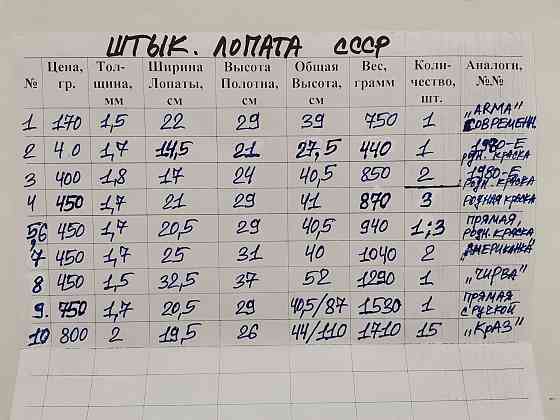 ШТЫК. ЛОПАТА СССР
№ Цена, гр. Тол-щина, мм Ширина Лопаты, см Высота Полотна, см Общая Высота, см Вес, грамм Коли-чество, шт. Аналоги, №№
1 170 1,5 22 29 39 750 1 "ARMA" СОВРЕМЕНН.
2 40 1,7 14,5 21 27,5 440 1 1980-Е РОДН. КРАСКА
3 400 1,8 17 24 40,5 850 2 1980-Е РОДН. КРАСКА
4 450 1,7 21 29 41 870 3 РОДНАЯ КРАСКА
5,6 450 1,7 20,5 29 40,5 940 1;3 ПРЯМАЯ, РОДН. КРАСКА
7 450 1,7 25 31 40 1040 2 "АМЕРИКАНКА"
8 450 1,5 32,5 37 52 1290 1 "ЧИРВА"
9. 750 1,7 20,5 29 40,5/87 1530 1 ПРЯМАЯ С РУЧКОЙ
10 800 2 19,5 26 44/110 1710 15 "КрАЗ"